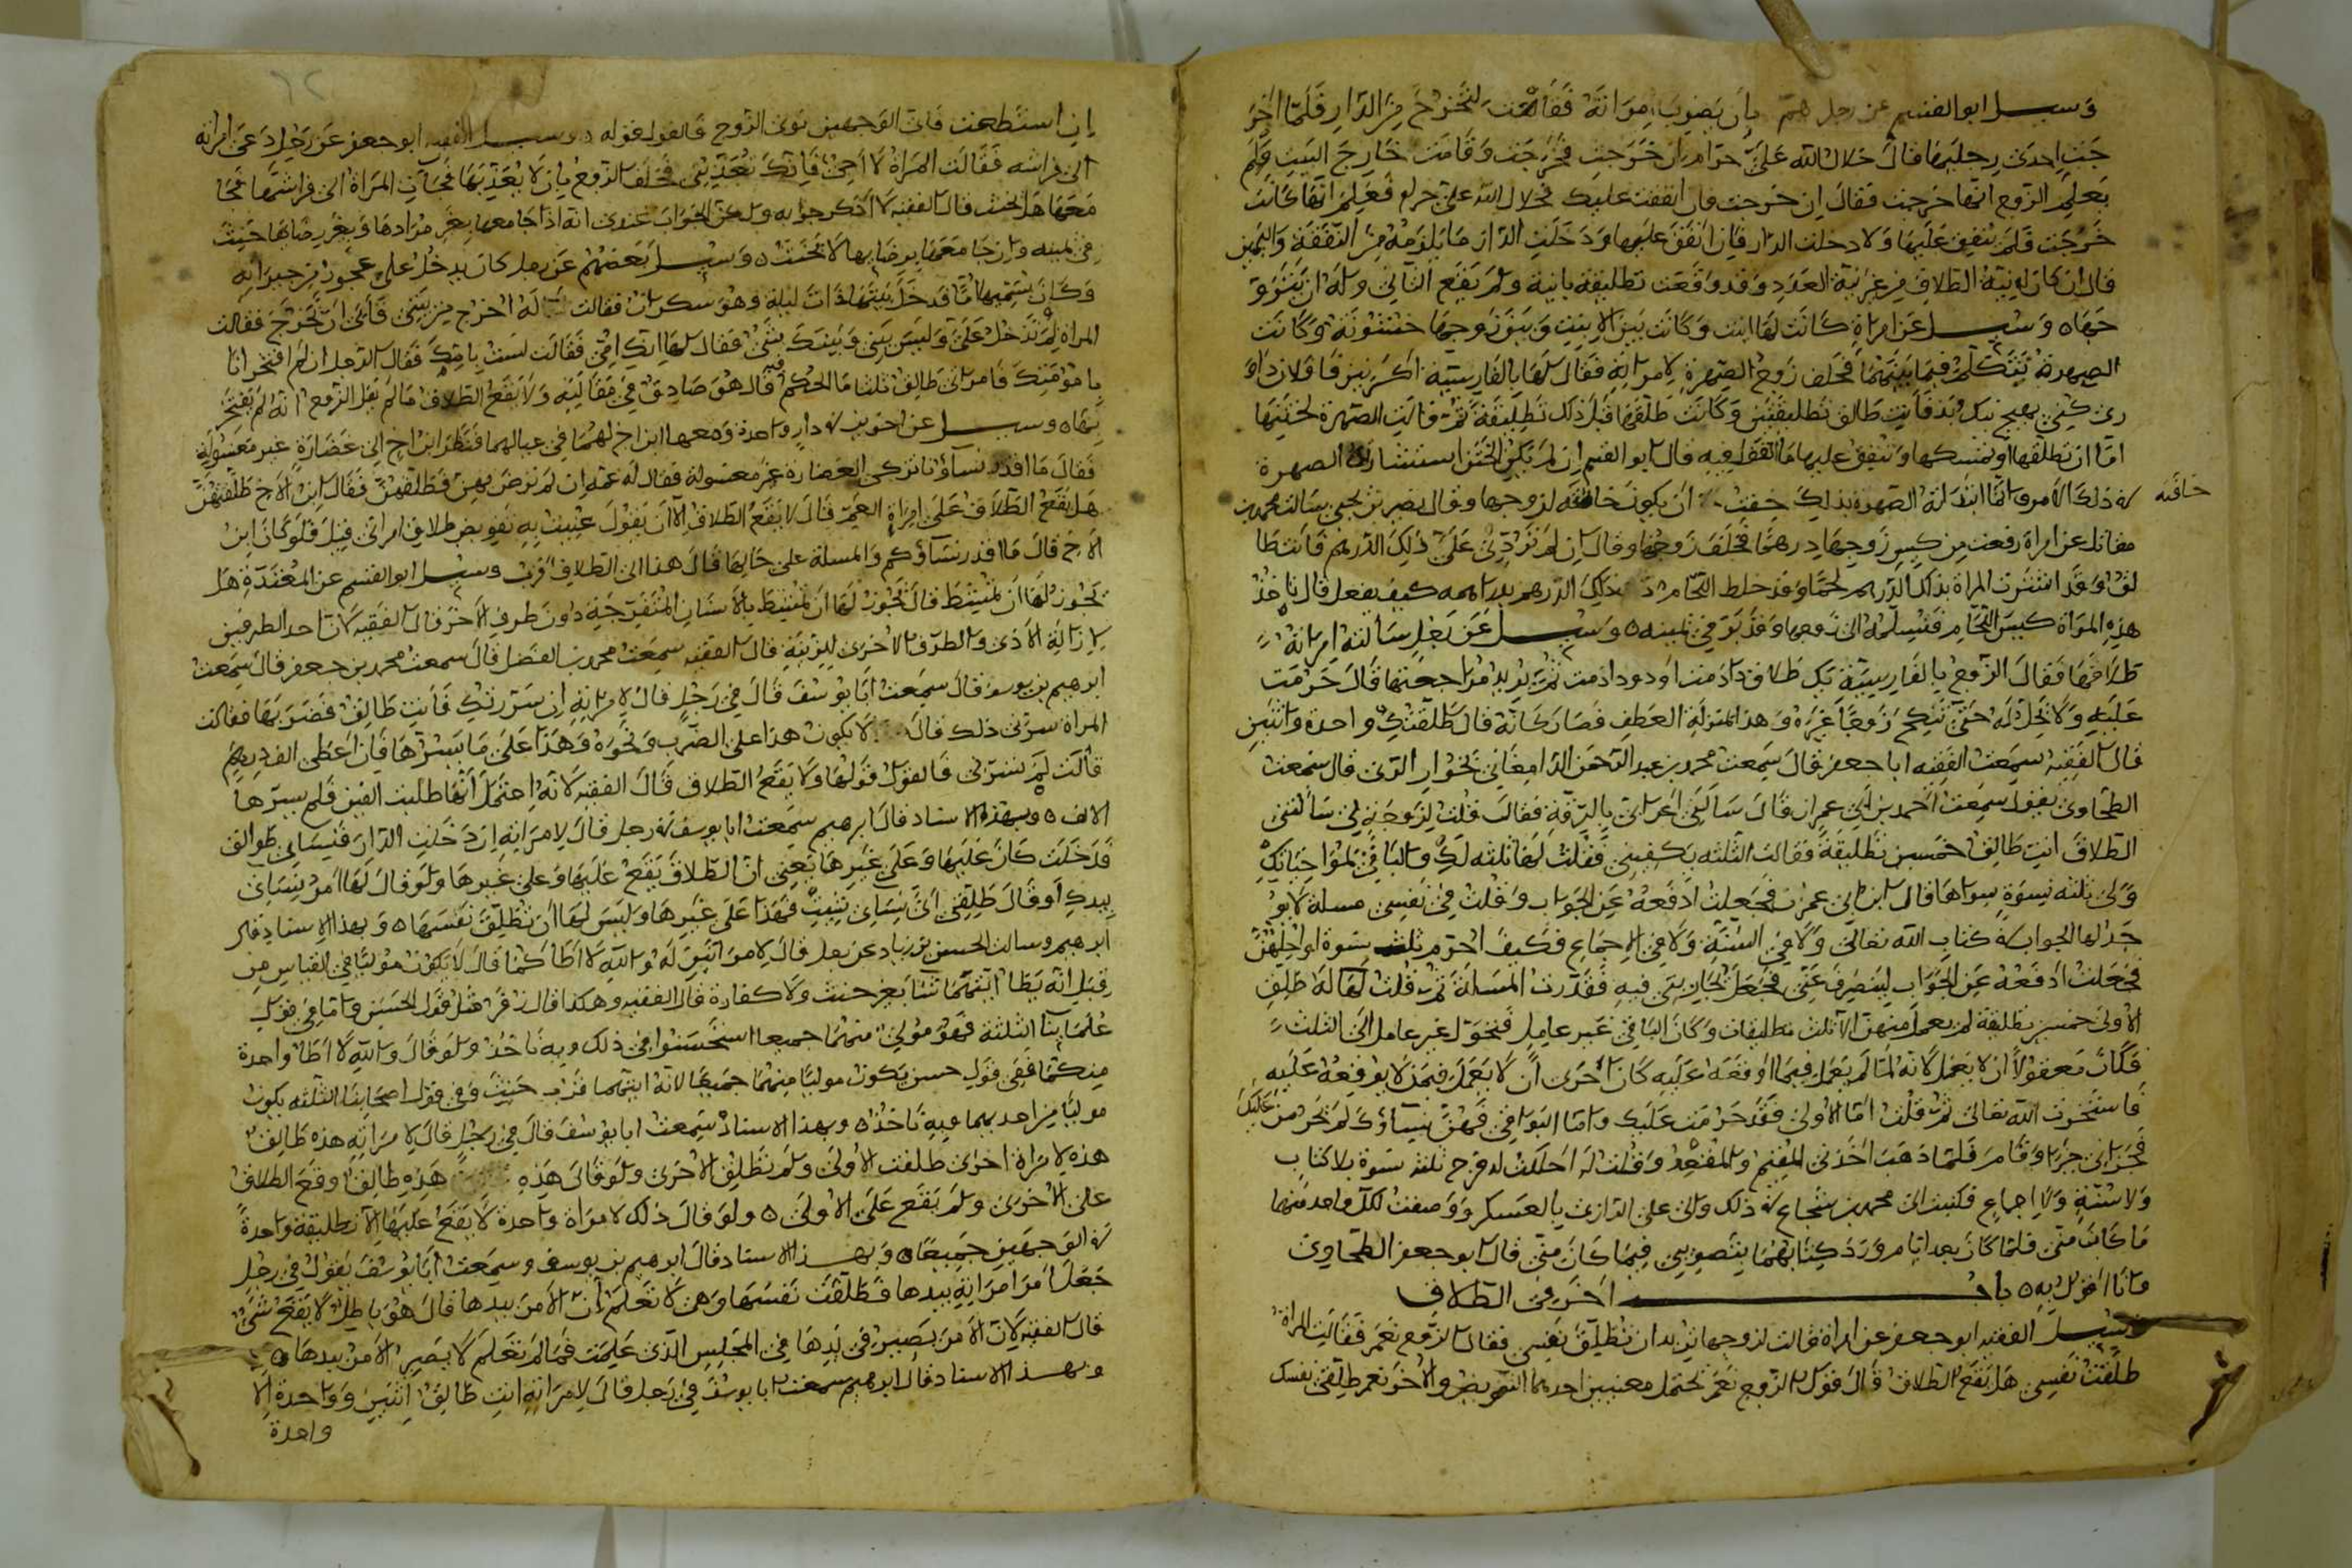 وسيل ابو القسم عن رجل همّ بأن يضرب امراته فقامت لتخرج من الدار فلما اخر
جت احدى رجليها قال حلال الله عليّ حرام ان خرجت فخرجت وقامت خارج البيت ولم
يعلم الزوج انها خرجت فقال ان خرجت فان انفقت عليك فحلال الله علي حرام فعلم انها كانت
خرجت فلم ينفق عليها ولا دخلت الدار فان انفق عليها ودخلت الدار ما يلزمه من النفقة واليمين
قال ان كان لونية الطلاق من غير نية العدد وقد وقعت تطليقة بانية ولم يقع الثاني وله ان يتزو
جها وسيل عن امراة كانت لها ابنت وكانت بين الابنت وبين زوجها خشونة وكانت
الصهرة تتكلم فيما بينهما فحلف زوج الصهرة لامراته فقال لها بالفارسية اكر نيز فافلان داو
رى كني بهيج نيك وبد فانت طالق تطليقتين وكانت طلقها قبل ذلك تطليقة ثم قالت الصهرة لختنها
اما ان تطلقها او تمسكها وتنفق عليها ما القول فيه قال ابو القسم ان لم يكن الختن استشار الصهرة
في ذلك الامر وانما ابتدات الصهرة بذلك خفت ان يكون حانثة لزوجها وقال نصير بن يحيى سالت محمد بن
حانثه
مقاتل عن امراة رفعت من كيس زوجها درهما فحلف زوجها وقال ان لم تردي علي ذلك الدرهم فانت طا
لق وقد اشترت المراة بذلك الدرهم لحما وقد خلط اللحام ذلك الدرهم بدراهمه كيف يفعل قال تاخذ
هذه المراة كيس اللحام فتسلمه الى زوجها وقد برّ في يمينه وسيل عن رجل سالته امراته
طلاقها فقال الزوج بالفارسية يك طلاق دادمت او دو دادمت ثم يريد مراجعتها قال حرمت
عليه ولا تحل له حتى تنكح زوجا غيره وهذا بمنزلة العطف فصار كانه قال طلقتك واحدة واثنين
قال الفقيه سمعت الفقيه ابا جعفر قال سمعت محمد بن عبد الرحمن الدامغاني بخوار الري قال سمعت
الطحاوي يقول سمعت احمد بن ابي عمران قال سالني اعرابي بالرقة فقال قلت لزوجة لي سالتني
الطلاق انت طالق خمسين تطليقة فقالت الثلثة يكفيني فقلت لها ثلثة لك والباقي لصواحباتك
ولي ثلثة نسوة سواها قال ابن ابي عمران فجعلت ادفعه عن الجواب وقلت في نفسي مسلة لا يو
جد لها الجواب في كتاب الله تعالى ولا في السنة ولا في الاجماع فكيف احرم ثلث نسوة او احلهن
فجعلت ادفعه عن الجواب لينصرف عني فجعل يجاريني فيه فقدرت المسالة ثم قلت لها له طلق
الاولى خمسين تطليقة لم يعمل منهن الا ثلث تطليقات وكان الباقي غير عامل فتحول غير عامل الى الثلث
فكان معقولا ان لا يعمل لانه لما لم يعمل فيما اوقعه عليه كان احرى ان لا يعمل فيمن لا يوقعه عليه
فاستخرت الله تعالى ثم قلت اما الاولى فقد حرمت عليك واما البواقي فهن نساؤك لم تحرمن عليك
فجزاني خيرا وقام فلما ذهب اخذني المقيم والمقعد وقلت له احللت له فرج ثلث نسوة بلا كتاب
ولا سنة ولا اجماع فكتبت الى محمد بن شجاع في ذلك والى علي الرازي بالعسكر ووصفت لكل واحد منهما
ما كان مني فلما كان بعد ايام ورد كتابهما بتصويبي فيما كان مني قال ابو جعفر الطحاوي
وانا اقول به باب اخر في الطلاق
وسيل الفقيه ابو جعفر عن امراة قالت لزوجها تريد ان تطلق نفسي فقال الزوج نعم فقالت المراة
طلقت نفسي هل يقع الطلاق قال قول الزوج نعم يحتمل معنيين احدهما التفويض والاخر نعم طلقي نفسك
ان استطعت فان الوجهين نوى الزوج فالقول قوله وسيل الفقيه ابو جعفر عن رجل دعى امراته
الى فراشه فقالت المراة لا اجئ فانك تعذبني فحلف الزوج بان لا يعذبها فجات المراة الى فراشها فجا
معها هل يحنث قال الفقيه لا اذكر جوابه ولكن الجواب عندي انه اذا جامعها بغير مرادها وبغير رضاها حنث
في يمينه وان جامعها برضاها لا يحنث وسيل بعضهم عن رجل كان يدخل على عجوز من جيرانه
وكان يسميها امّا فدخل بيتها ذات ليلة وهو سكران فقالت له اخرج من بيتي فابى ان تخرج فقالت
المراة لم تدخل علي وليس بيني وبينك شيء فقال لها انك امي فقالت لست بامك فقال الرجل ان لم افتخر انا
بامومتك فامراتي طالق ثلثا ما الحكم فيه قال هو صادق في مقالته ولا يقع الطلاق ما لم يقل الزوج انه لم يفتخر
بها وسيل عن اخوين في دار واحدة ومعهما ابن اخ لهما في عيالهما فنظر ابن اخ الى غضارة غير مغسولة
فقال ما اقذر نساؤنا تركن الغضارة غير مغسولة فقال له عمه ان لم ترض بهن فطلقهن فقال ابن الاخ طلقتهن
هل يقع الطلاق على امراة العم قال لا يقع الطلاق الا ان يقول عنيت به تفويض طلاق امراتي قيل فلو كان ابن
الاخ قال ما اقذر نساؤكم والمسلة على حالها قال هذا الى الطلاق اقرب وسيل ابو القسم عن المعتدة هل
يجوز لها ان تمتشط قال يجوز لها ان تمتشط بالاسنان المنفرجة دون طرف الاخر قال الفقيه لان احد الطرفين
لازالة الاذى والطرف الاخرى للزينة قال الفقيه سمعت محمد بن الفضل قال سمعت محمد بن جعفر قال سمعت
ابرهيم بن يوسف قال سمعت ابا يوسف قال في رجل قال لامراته ان سررتك فانت طالق فضربها فقالت
المراة سرني ذلك قال لا يكون هذا على الضرب ونحوه وهذا على ما يسرها فان اعطى الف درهم
قالت لم يسرني فالقول قولها ولا يقع الطلاق قال الفقيه لانه احتمل انها طلبت الفين فلم يسرها
الالف وبهذا الاسناد قال ابرهيم سمعت ابا يوسف في رجل قال لامراته ان دخلت الدار فنساي طوالق
فدخلت كان عليها وعلى غيرها يعني ان الطلاق يقع عليها وعلى غيرها ولو قال لها امر نساي
بيدك او قال طلقي اي نساي شئت فهذا على غيرها وليس لها ان تطلق نفسها وبهذا الاسناد قال
ابرهيم وسالت الحسن بن زياد عن رجل قال لامراتين له والله لا اطاكما قال لا يكون موليا في القياس من
قبل انه يطا ايتهما شا بغير حنث ولا كفارة قال الفقيه وهكذا قال زفر مثل قول الحسن واما في قول
علماينا الثلثة فهو مولي منهما جميعا استحسنوا في ذلك وبه ناخذ ولو قال والله لا اطا واحدة
منكما ففي قول حسن يكون موليا منهما جميعا لانه ايتهما قرب حنث وفي قول اصحابنا الثلثة يكون
موليا من احديهما وبه ناخذ وبهذا الاسناد سمعت ابا يوسف قال في رجل قال لامراته هذه طالق
هذه لامراة اخرى طلقت الاولى ولم تطلق الاخرى ولو قال هذه هذه طالق وقع الطلاق
على الاخرى ولم يقع على الاولى ولو قال ذلك لامراة واحدة لا يقع عليها الا تطليقة واحدة
في الوجهين جميعا وبهذا الاسناد قال ابرهيم بن يوسف وسمعت ابا يوسف يقول في رجل
جعل امر امراته بيدها فطلقت نفسها وهي لا تعلم ان الامر بيدها قال هو باطل لا يقع شيء
قال الفقيه لان الامر يصير في يدها في المجلس الذي علمت فما لم تعلم لا يصير الامر بيدها
وبهذا الاسناد قال ابرهيم سمعت ابا يوسف في رجل قال لامراته انت طالق اثنين وواحدة الا
واحدة